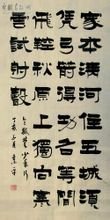 家本清河住五城須
憑弓箭得功名等閑
飛鞚秋原上獨向寒
雲試射聲
令狐楚少年行